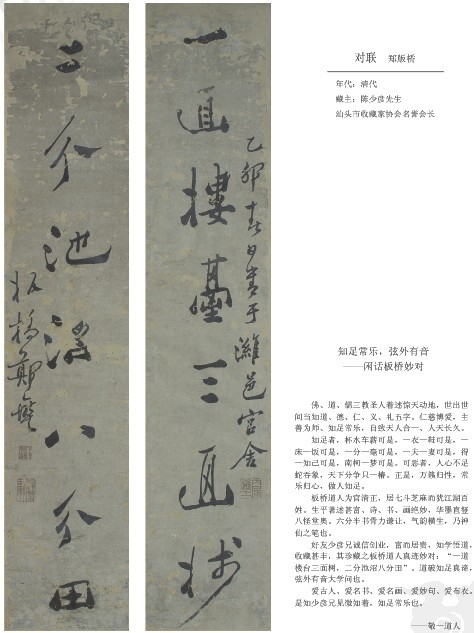 一樓臺三面樹
乙卯春日書于濰邑官舍
二分池沼八分田
板橋鄭燮
对联 郑版桥
年代：清代
藏主：陈少彦先生
汕头市收藏家协会名誉会长
知足常乐，弦外有音
——闲话板桥妙对
佛、道、儒三教圣人着述惊天动地，世出世
间当知道、德、仁、义、礼五字。仁慈博爱，主
善为师、知足常乐，自致天人合一、人天长久。
知足者，杯水车薪可是。一衣一鞋可是，一
床一饭可是，一分一毫可是，一夫一妻可是，得
一知己可是，南柯一梦可是。可恶者，人心不足
蛇吞象，天下分争只一椿。正是，万籁归性，常
乐归心，做人如足。
板桥道人为官清正，居七斗芝麻而犹江湖百
姓。生平著述甚富、诗、书、画绝妙，华墨直竪
八怪堂奥。六分半书骨力邀让，气韵横生，乃神
仙之笔也。
好友少彦兄诚信剑业，富而居贵，知学悟道
收藏甚丰，其珍藏之板桥道人真迹妙对：“一道
楼台三面树，二分池沼八分田”。道破知足真谛，
弦外有音大学问也。
爱古人、爱名书、爱名画、爱妙句、爱布衣。
是知少彦兄见微知着，知足常乐也。
——敬一道人